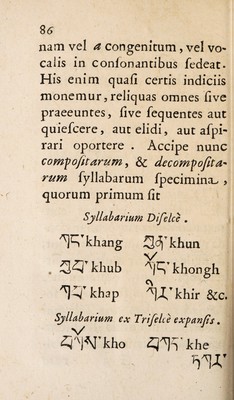 86
nam vel a congenitum, vel vo-
calis in conſonantibus ſedeat.
His enim quaſi certis indiciis
monemur, reliquas omnes ſive
præeuntes, ſive ſequentes aut
quieſcere, aut elidi, aut aſpi-
rari oportere. Accipe nunc
compoſitarum, & decompoſita-
rum ſyllabarum ſpecimina,
quorum primum ſit
Syllabarium Diſelcè.
khang khun
khub khongh
khap khir &c.
Syllabarium ex Triſelcè expanſis.
kho khe